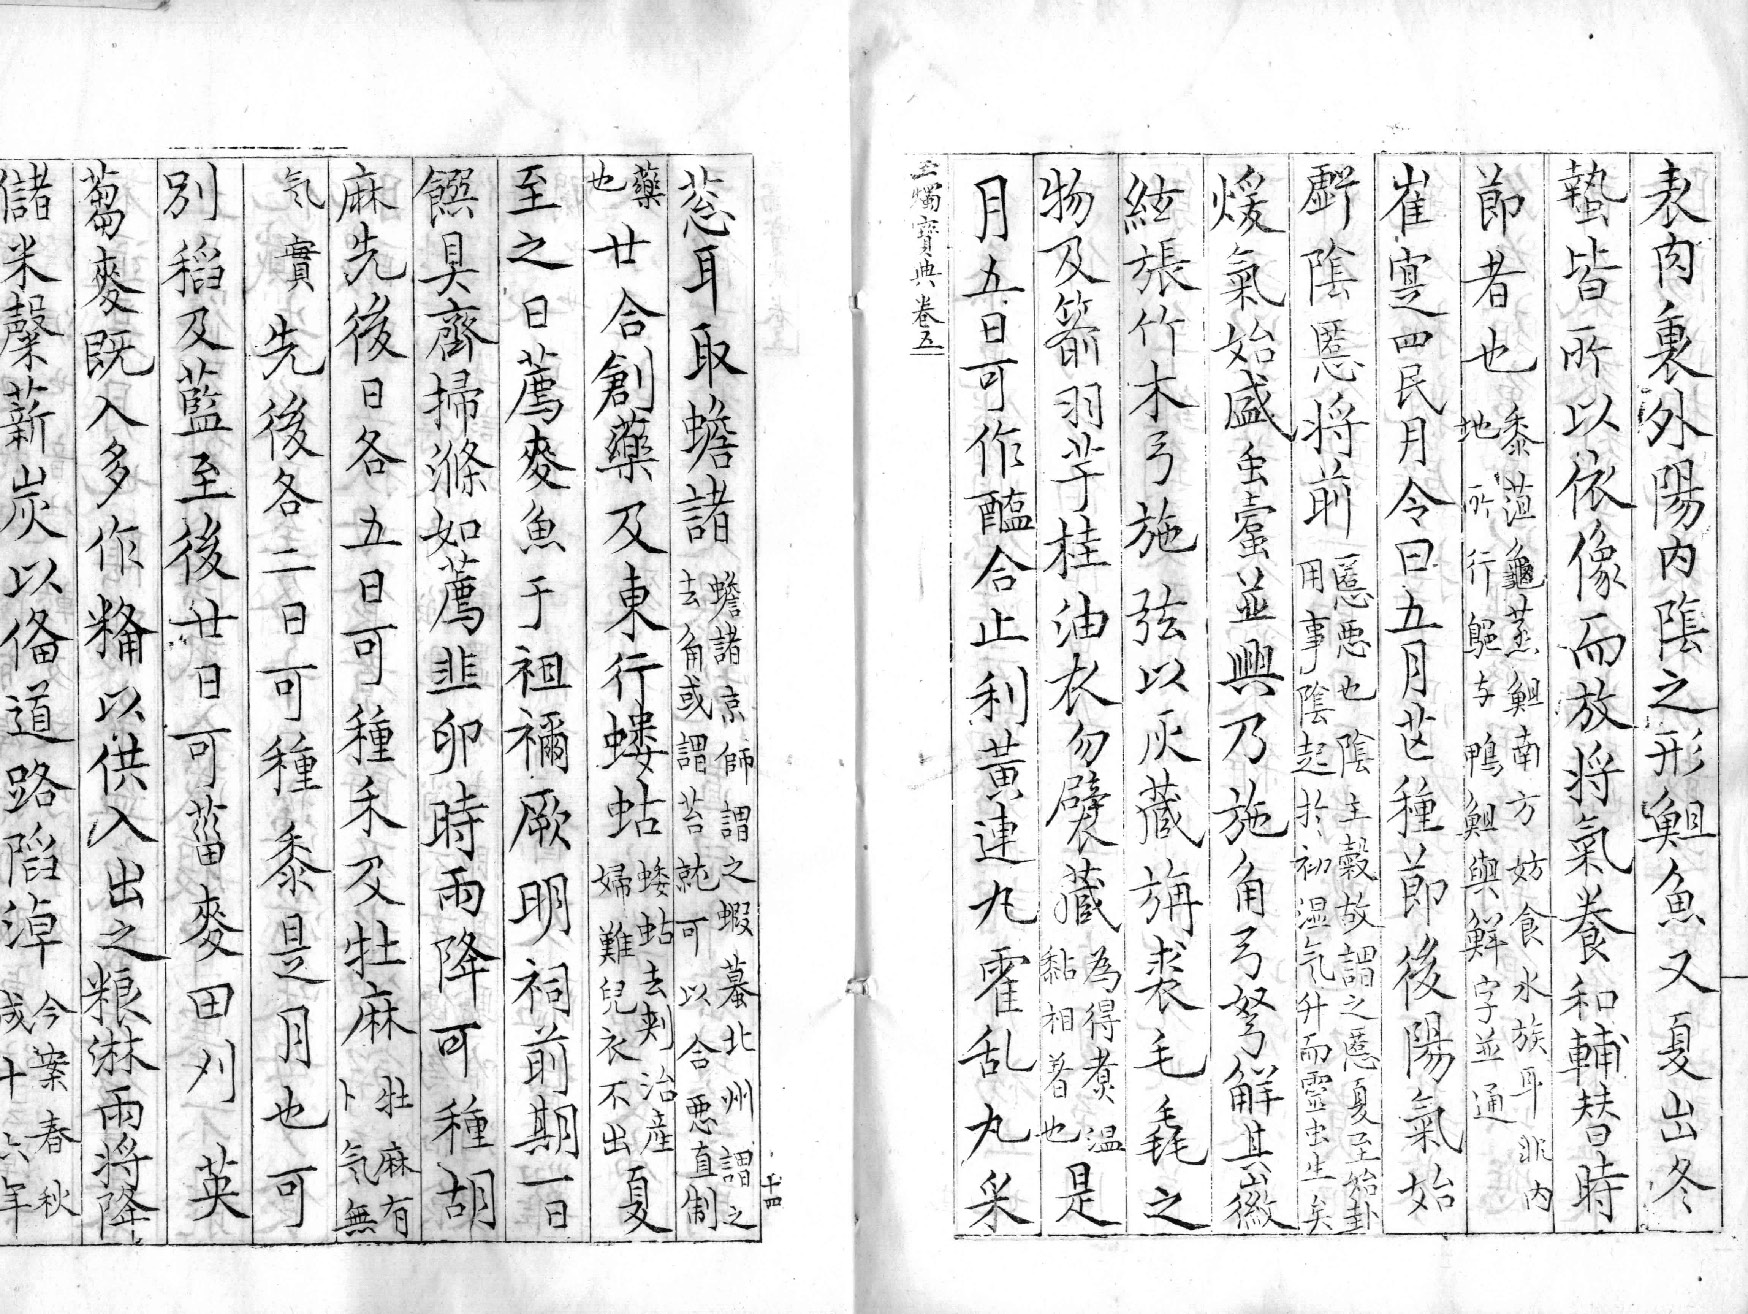 表肉裏外陽内陰之形䱉魚又夏出冬
蟄皆所以依像而放将氣養和輔替時
節者也黍蒩龜蒸䱉南方妨食水族耳非内
地所行䱉與鮮字並通
崔寔四民月令曰五月芒種節後陽氣始
虧陰慝将前慝惡也陰主殺故謂之慝夏至始卦
用事陰起於初湿气升而霊虫生矣
煖氣始盛虫蠹並興乃施角弓弩解其徽
絃張竹木弓施弦以灰藏旃裘毛毳之
物及箭羽芋桂油衣勿襞藏為得煑温
黏相著也是
月五日可作醢合止利黃連丸霍乱丸采
玉燭寶典卷五
十四
葸耳取蟾諸蟾諸京師謂之蝦蟇北州謂之
去角或謂苔蚖可以合惡直制
藥
也廿合創藥及東行螻蛄螻蛄去刺治産
婦難兒衣不出夏
至之日薦麥魚于祖禰厥明祠前期一日
饌具齊掃滌如薦韭卵時雨降可種胡
麻先後日各五日可種禾及牡麻牡麻有
气無
實先後各二日可種黍是月也可
別稻及藍至後廿日可菑麥田刈英
蒭麥既入多作糒以供入出之粮淋雨将降
儲米糱薪炭以俻道路陷淖今案春秋
成十六年